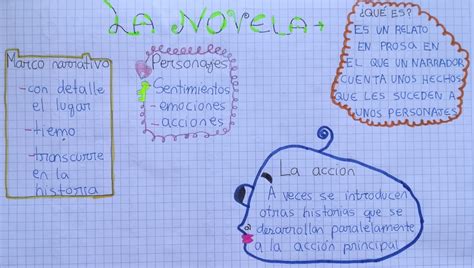 LA NOVELA→
¿QUE ES?
ES UN RELATO
EN PROSA EN
EL QUE UN NARRADOR
CUENTA UNOS HECHOS
QUE LES SUCEDEN A
UNOS PERSONAJES
Marco narrativo
-con detalle
el lugar
-tiemo
-transcurre
en la
historia
Personajes
Sentimientos
-emociones
-acciones
La accion
A veces se introducen
otras historias que se
desarrollan paralelamente
a la acción principal